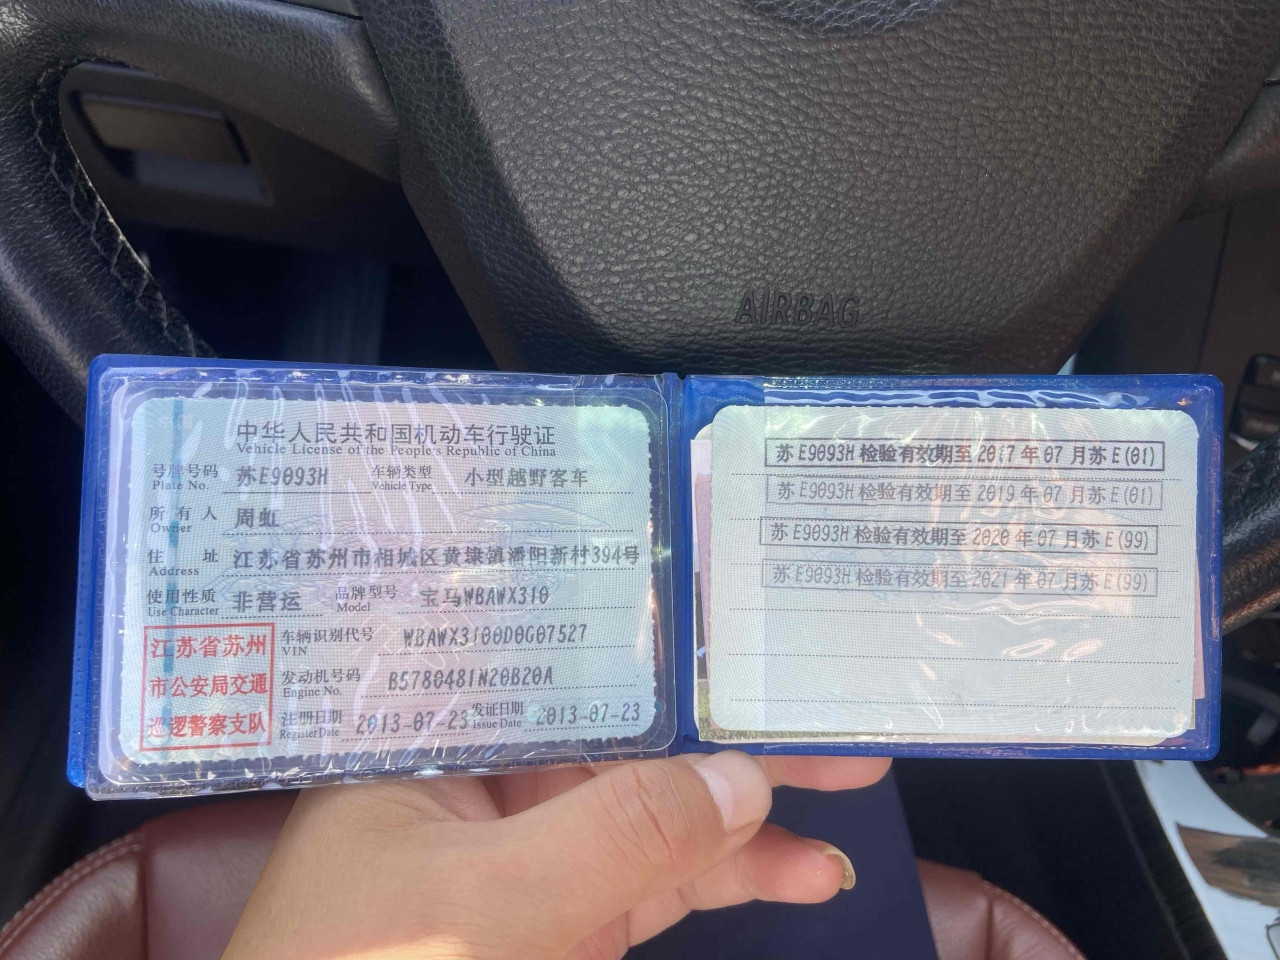 AIRBAG
中华人民共和国机动车行驶证
Vehicle License of the People's Republic of China
号牌号码 苏E9093H 车辆类型 小型越野客车
Plate No. Vehicle Type
所有人 周虹
Owner
住址 江苏省苏州市相城区黄埭镇潘阳新村394号
Address
使用性质 非营运 品牌型号 宝马WBAWX310
Use Character Model
江苏省苏州
市公安局交通
巡逻警察支队
车辆识别代号 WBAWX3100D0G07527
VIN
发动机号码 B5780481N20B20A
Engine No.
注册日期 2013-07-23 发证日期 2013-07-23
Register Date Issue Date
苏E9093H 检验有效期至 2017 年 07 月苏E(01)
苏E9093H 检验有效期至 2019 年 07 月苏E(01)
苏E9093H 检验有效期至 2020 年 07 月苏E(99)
苏E9093H 检验有效期至 2021 年 07 月苏E(99)